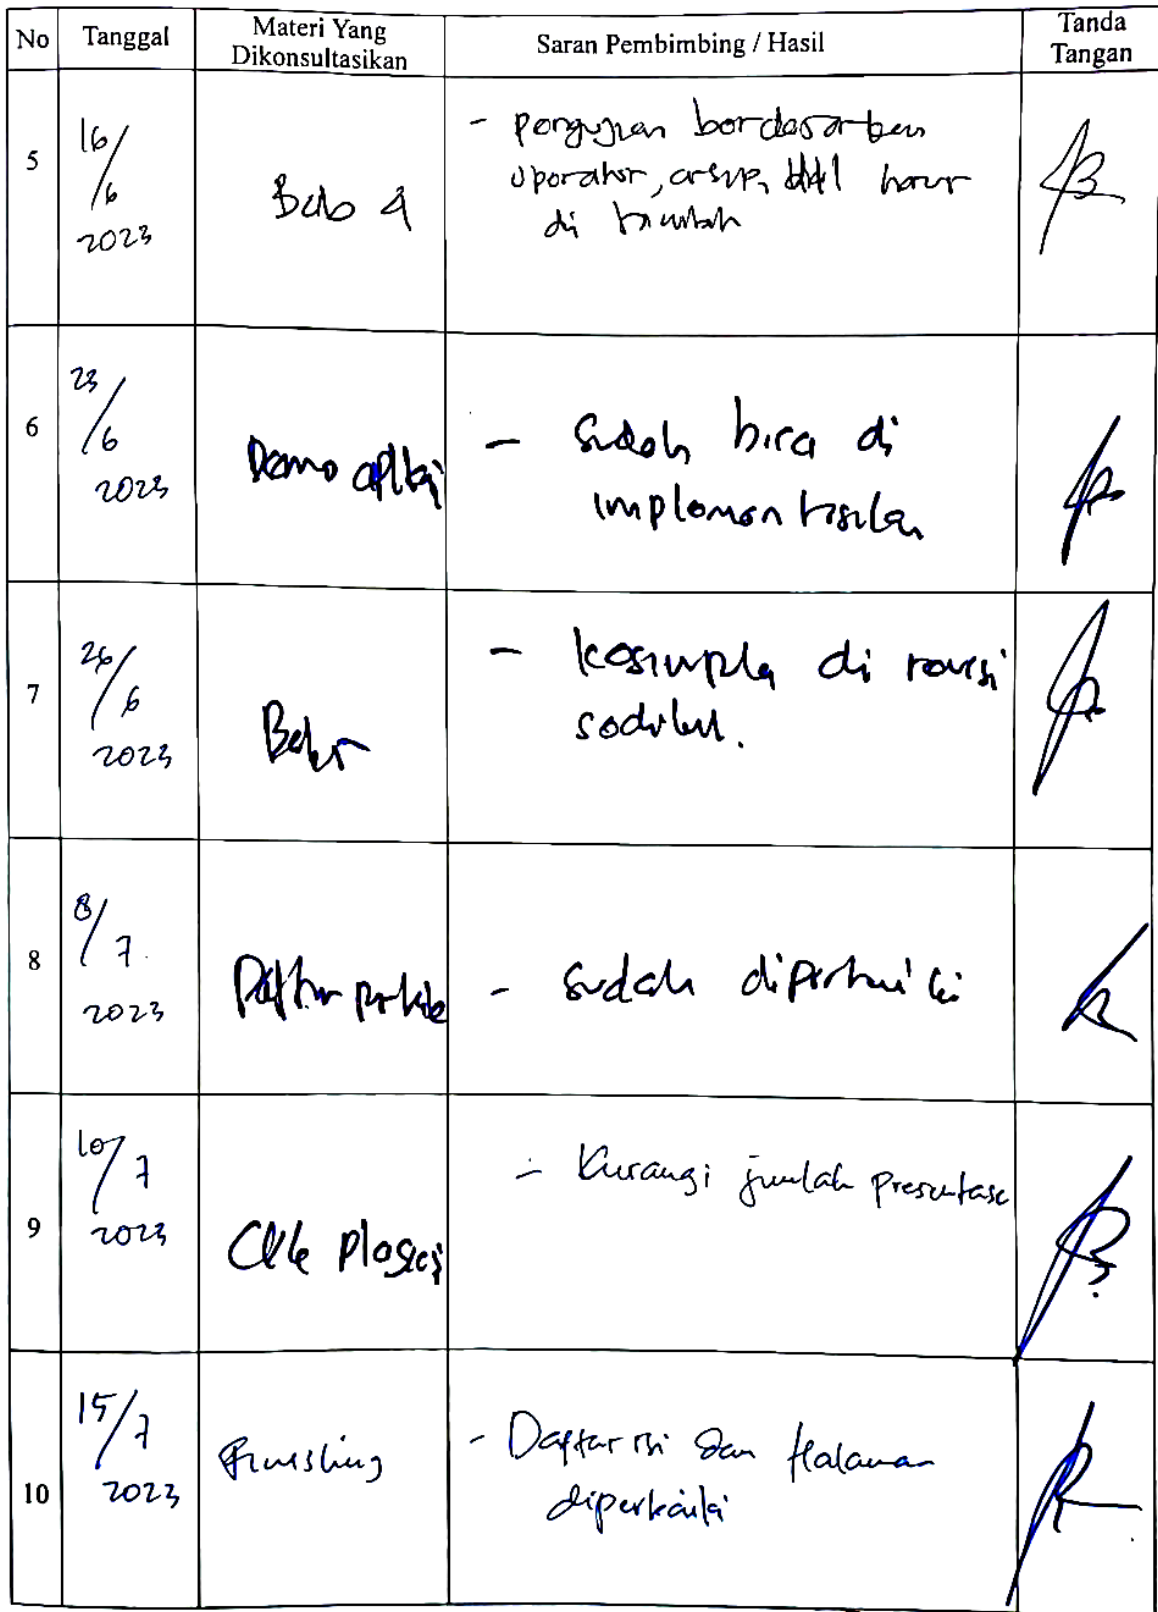 No Tanggal Materi Yang Dikonsultasikan Saran Pembimbing / Hasil Tanda Tangan
5
16/6
2023
Bab 4
- pengujian berdasarkan
operator, arsip, harus
di
6
23/6
2023
Demo
- sudah bisa di
implementasikan
7
26/6
2023
Bab
- kesimpula di revisi
sedikit.
8
8/7
2023
Daftar
- sudah diperbaiki
9
10/7
2023
Cek Plagiasi
- Kurangi jumlah presentase
10
15/7
2023
Finishing
- Daftar isi dan Halaman
diperbaiki